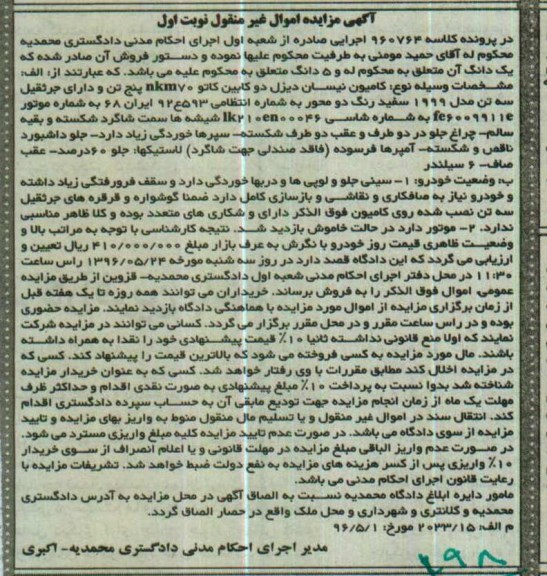 آگهی مزایده اموال غیر منقول نوبت اول
در پرونده کلاسه ۹۶۰۷۶۴ اجرایی صادره از شعبه اول اجرای احکام مدنی دادگستری محمدیه
محکوم له آقای حمید مومنی به طرفیت محکوم علیها نموده و دستور فروش آن صادر شده که
یک دانگ آن متعلق به محکوم له و ۵ دانگ متعلق به محکوم علیه می باشد. که عبارتند از: الف:
مشخصات وسیله نوع: کامیون نیسان دیزل دو کابین کاتو nkm۷۰ پنج تن و دارای جرثقیل
سه تن مدل ۱۹۹۹ سفید رنگ دو محور به شماره انتظامی ۵۹۳ع۹۲ ایران ۶۸ به شماره موتور
fe۶۰۰۹۹۱۱e به شماره شاسی lk۲۱۰en۰۰۰۴۶ شیشه ها سمت شاگرد شکسته و بقیه
سالم- چراغ جلو در دو طرف و عقب دو طرف شکسته- سپرها خوردگی زیاد دارد- جلو داشبورد
ناقص و شکسته- آمپرها فرسوده (فاقد صندلی جهت شاگرد) لاستیکها: جلو ۶۰درصد- عقب
صاف- ۶ سیلندر
ب: وضعیت خودرو: ۱- سینی جلو و لوپی ها و دربها خوردگی دارد و سقف فرورفتگی زیاد داشته
و خودرو نیاز به صافکاری و نقاشی و بازسازی کامل دارد ضمنا گوشواره و قرقره های جرثقیل
سه تن نصب شده روی کامیون فوق الذکر دارای و شکاری های متعدد بوده و کلا ظاهر مناسبی
ندارد. ۲- موتور دارد در حالت خاموش بازدید شد. نتیجه کارشناسی با توجه به مراتب بالا و
وضعیت ظاهری قیمت روز خودرو با نگرش به عرف بازار مبلغ ۴۱۰/۰۰۰/۰۰۰ ریال تعیین و
ارزیابی می گردد که این دادگاه قصد دارد در روز سه شنبه مورخه ۱۳۹۶/۰۵/۲۴ راس ساعت
۱۱:۳۰ در محل دفتر اجرای احکام مدنی شعبه اول دادگستری محمدیه- قزوین از طریق مزایده
عمومی، اموال فوق الذکر را به فروش برساند. خریداران می توانند همه روزه تا یک هفته قبل
از زمان برگزاری مزایده از اموال مورد مزایده با هماهنگی دادگاه بازدید نمایند. مزایده حضوری
بوده و در راس ساعت مقرر و در محل مقرر برگزار می گردد. کسانی می توانند در مزایده شرکت
نمایند که اولا منع قانونی نداشته ثانیا ۱۰٪ قیمت پیشنهادی خود را نقدا به همراه داشته
باشند. مال مورد مزایده به کسی فروخته می شود که بالاترین قیمت را پیشنهاد کند. کسی که
در مزایده اخلال کند مطابق مقررات با وی رفتار خواهد شد. کسی که به عنوان خریدار مزایده
شناخته شد بدوا نسبت به پرداخت ۱۰٪ مبلغ پیشنهادی به صورت نقدی اقدام و حداکثر ظرف
مهلت یک ماه از زمان انجام مزایده جهت تودیع مابقی آن به حساب سپرده دادگستری اقدام
کند. انتقال سند در اموال غیر منقول و یا تسلیم مال منقول منوط به واریز بهای مزایده و تایید
مزایده از سوی دادگاه می باشد. در صورت عدم تایید مزایده کلیه مبلغ واریزی مسترد می شود.
در صورت عدم واریز الباقی مبلغ مزایده در مهلت قانونی و یا اعلام انصراف از سوی خریدار
۱۰٪ واریزی پس از کسر هزینه های مزایده به نفع دولت ضبط خواهد شد. تشریفات مزایده با
رعایت قانون اجرای احکام مدنی می باشد.
مامور دایره ابلاغ دادگاه محمدیه نسبت به الصاق آگهی در محل مزایده به آدرس دادگستری
محمدیه و کلانتری و شهرداری و محل ملک واقع در حصار الصاق گردد.
م الف: ۲۰۳۳/۱۵ مورخ: ۹۶/۵/۱
مدیر اجرای احکام مدنی دادگستری محمدیه- اکبری